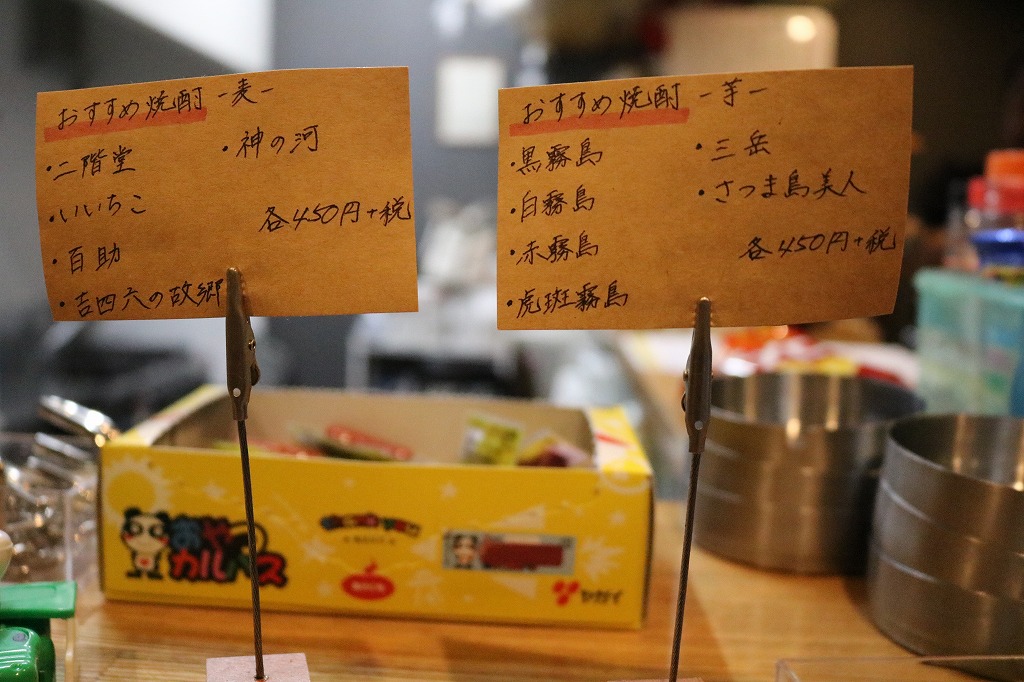 おすすめ焼酎 -麦-
・二階堂
・いいちこ
・百助
・吉四六の故郷
・神の河
各450円+税
おすすめ焼酎 -芋-
・黒霧島
・白霧島
・赤霧島
・虎斑霧島
・三岳
・さつま島美人
各450円+税
おやつ
カルパス
ヤガイ